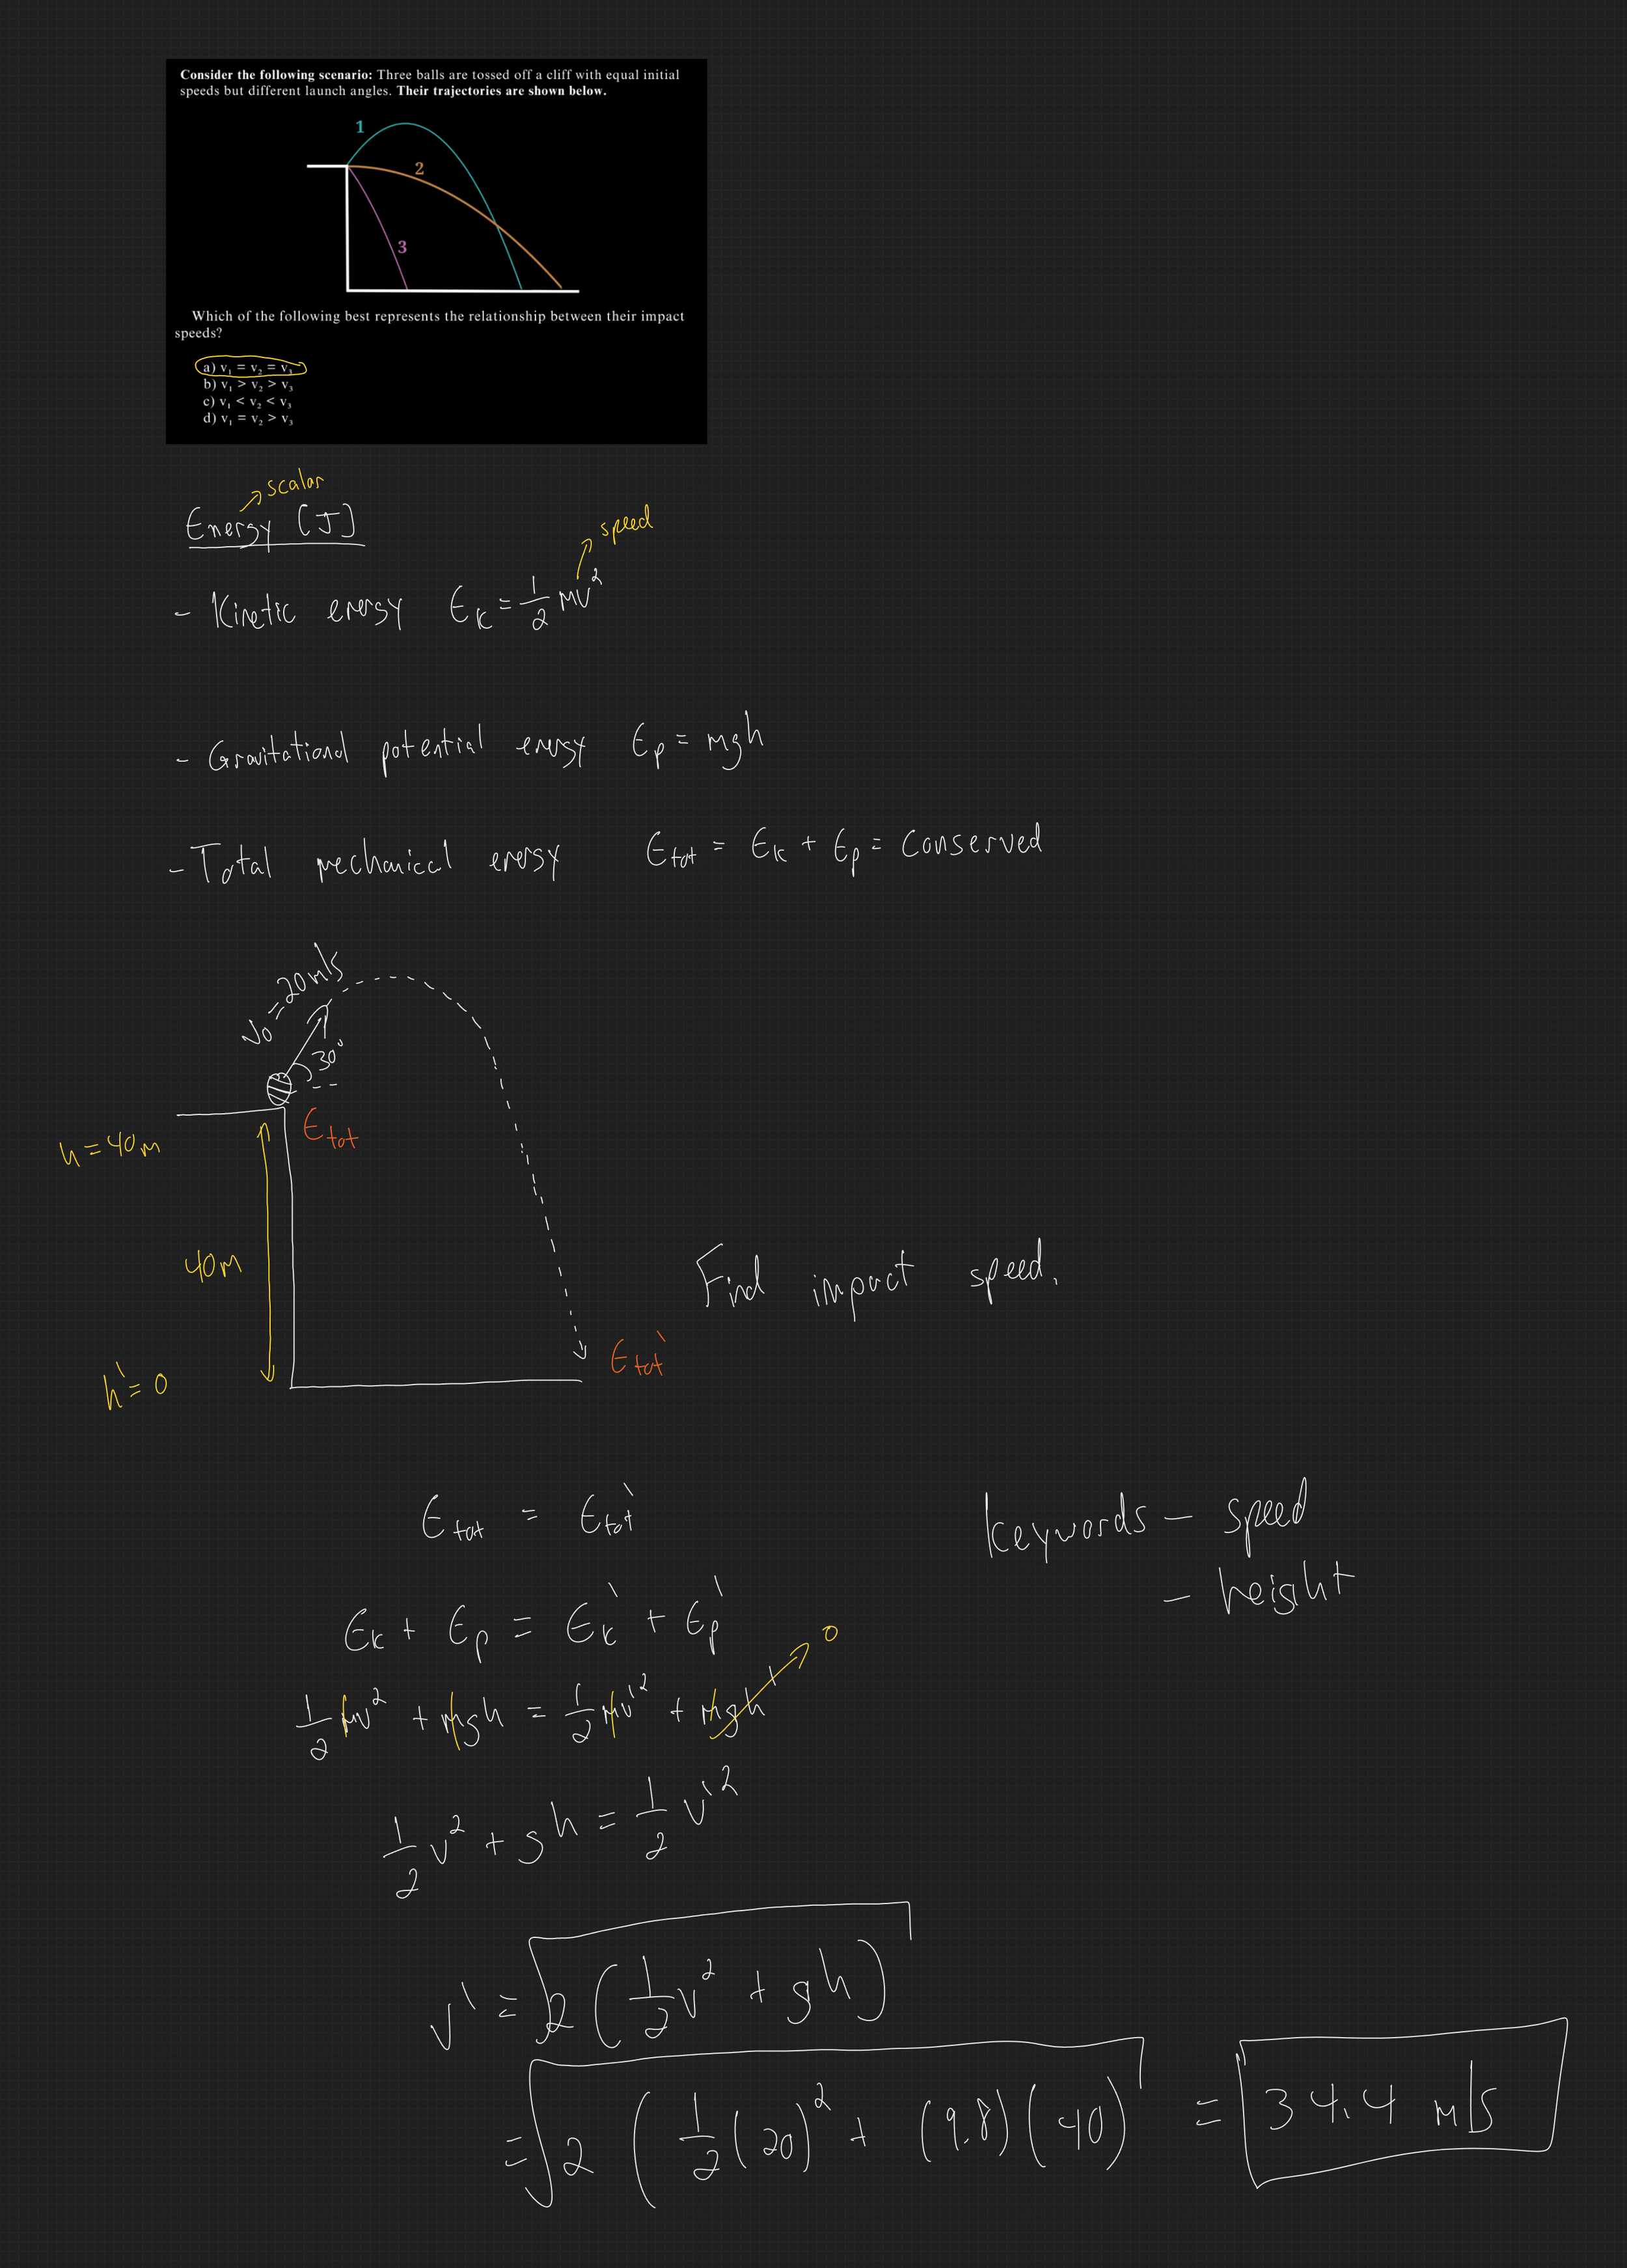 Consider the following scenario: Three balls are tossed off a cliff with equal initial
speeds but different launch angles. Their trajectories are shown below.
1
2
3
Which of the following best represents the relationship between their impact
speeds?
a) v₁ = v₂ = v₃
b) v₁ > v₂ > v₃
c) v₁ < v₂ < v₃
d) v₁ = v₂ > v₃
scalar
Energy (J)
speed
- Kinetic energy Eₖ = 1/2 mv²
- Gravitational potential energy Eₚ = mgh
- Total mechanical energy Eₜₒₜ = Eₖ + Eₚ = Conserved
v₀ = 20 m/s
30°
Eₜₒₜ
h = 40 m
40 m
Find impact speed.
Eₜₒₜ'
h' = 0
Eₜₒₜ = Eₜₒₜ'
Keywords - speed
- height
Eₖ + Eₚ = Eₖ' + Eₚ'
0
1/2 mv² + mgh = 1/2 mv'² + mgh'
1/2 v² + gh = 1/2 v'²
v' = √2(1/2 v² + gh)
= √2(1/2 (20)² + (9.8)(40) = 34.4 m/s